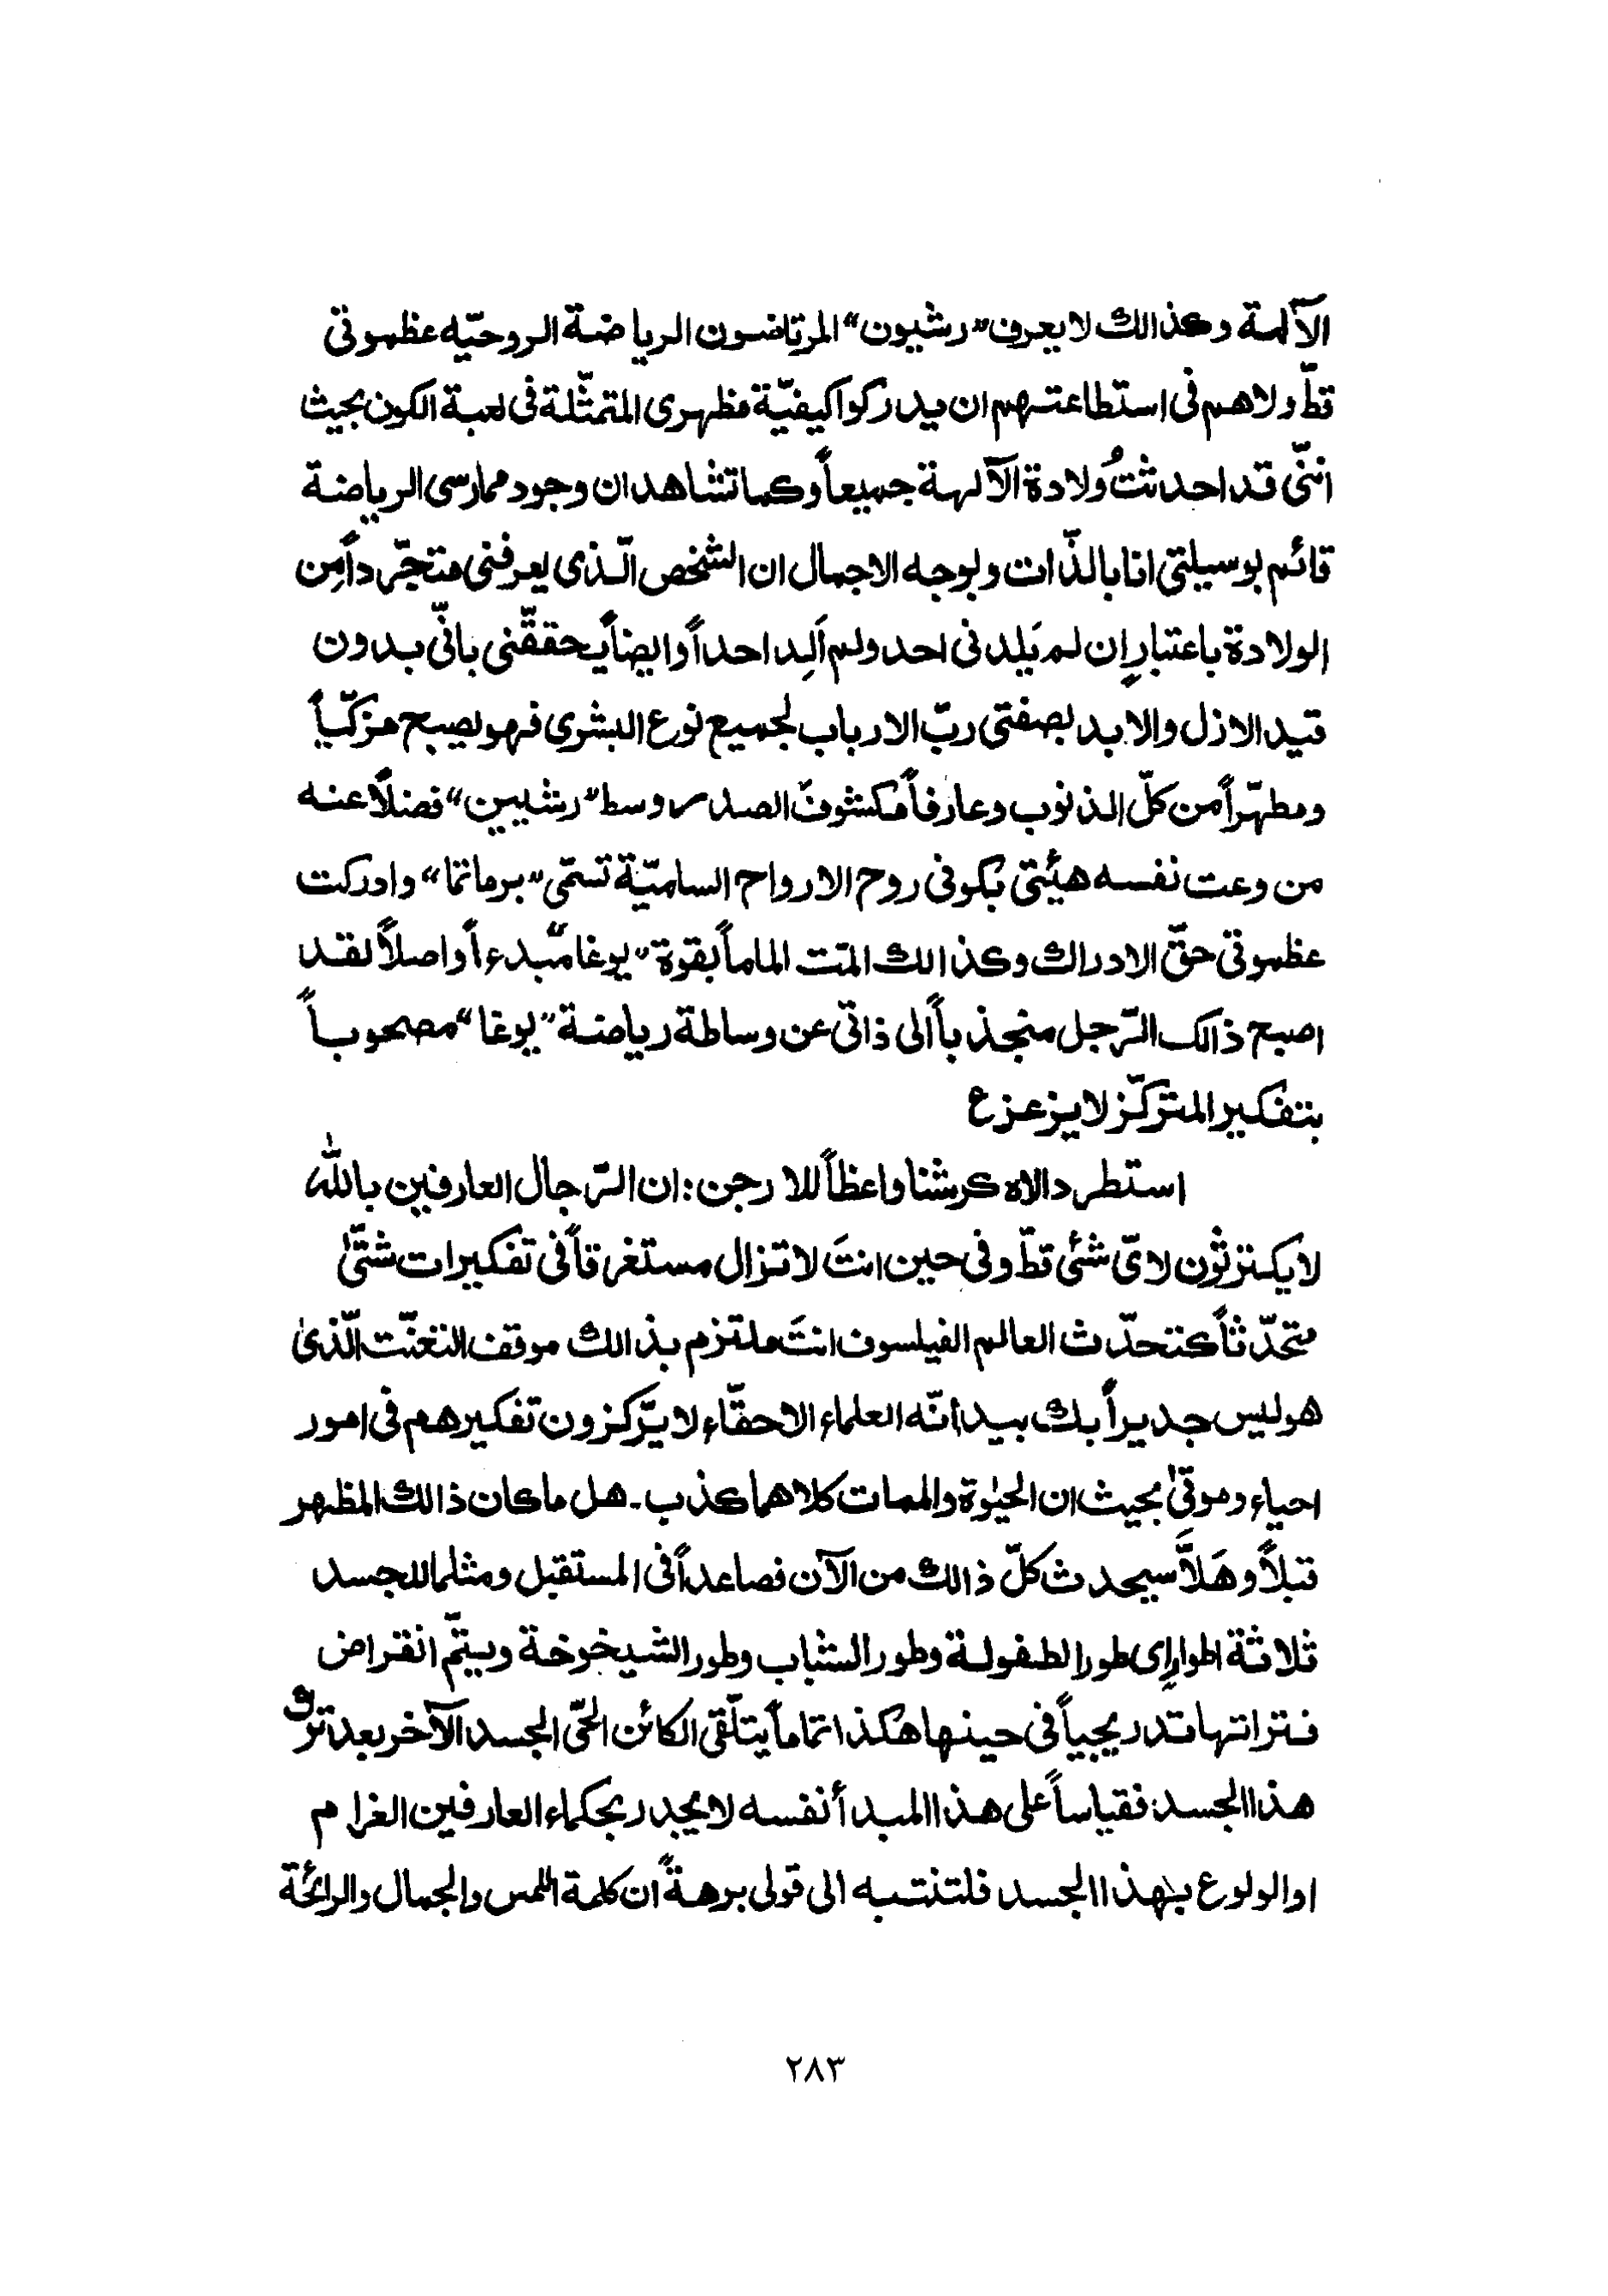 الآلهة وكذالك لا يعرف "رشيون" المرتاضون الرياضة الروحيّه عظموتی
قطّ ولاهم فی استطاعتهم ان يدركوا كيفيّة مظهری المتمثّلة فی لعبة الكون بحيث
اننّی قد احدثتُ ولادة الآلهة جميعاً وكما تشاهد ان وجود ممارسی الرياضة
قائم بوسيلتی انا بالذّات وبوجه الاجمال ان الشّخص الّذی يعرفنی متجّرداً من
الولادة باعتبارِ ان لم يَلِد نی احد ولم اَلِد احداً وايضاً يحققّنی بانّی بدون
قيد الازل والابد بصفتی ربّ الارباب لجميع نوع البشری فهو يصبح مزكّياً
ومطهّراً من كلّ الذنوب وعارفاً مكشوف الصدر وسط "رشيين" فضلاً عنه
من وعت نفسه هيئتی بكونی روح الارواح الساميّة تسمّی "برماتما" وادركت
عظموتی حقّ الادراك وكذالك المّت الماماً بقوة "يوغا" مبدءاً واصلاً لقد
اصبح ذالك الرّجل منجذباً الی ذاتی عن وساطة رياضة "يوغا" مصحوباً
بتفكير المتركّز لا يزعزع
استطرد الاه كرشنا واعظاً للارجن: ان الرّجال العارفين بالله
لا يكترثون لایّ شئی قطّ وفی حين انتَ لا تزال مستغرقاً فی تفكيرات شتّیٰ
متحّدثاً كتحدّث العالم الفيلسوف انتَ ملتزم بذالك موقف التعنّت الّذی
هو ليس جديراً بك بيد أنّه العلماء الاحقّاء لا يرّكزون تفكيرهم فی امور
احياء وموتیٰ بحيث ان الحيٰوة والممات كلاهما كذب۔ هل ما كان ذالك المظهر
قبلاً وهَلاَّ سيحدث كلّ ذالك من الآن فصاعداً فی المستقبل ومثلما للجسد
ثلاثة اطوارِ ای طور الطفولة وطور الشباب وطور الشيخوخة ويتمّ انقراض
فتراتها تدريجياً فی حينها هكذا تماماً يتلّقی الكائن الحیّ الجسد الآخر بعد ترك
هذا الجسد، فقياساً علی هذا المبدأ نفسه لا يجدر بحكماء العارفين الغرام
او الولوع بهذا الجسد فلتنتبه الی قولی برهةً ان كلمة اللمس والجمال والرائحة
٢٨٣